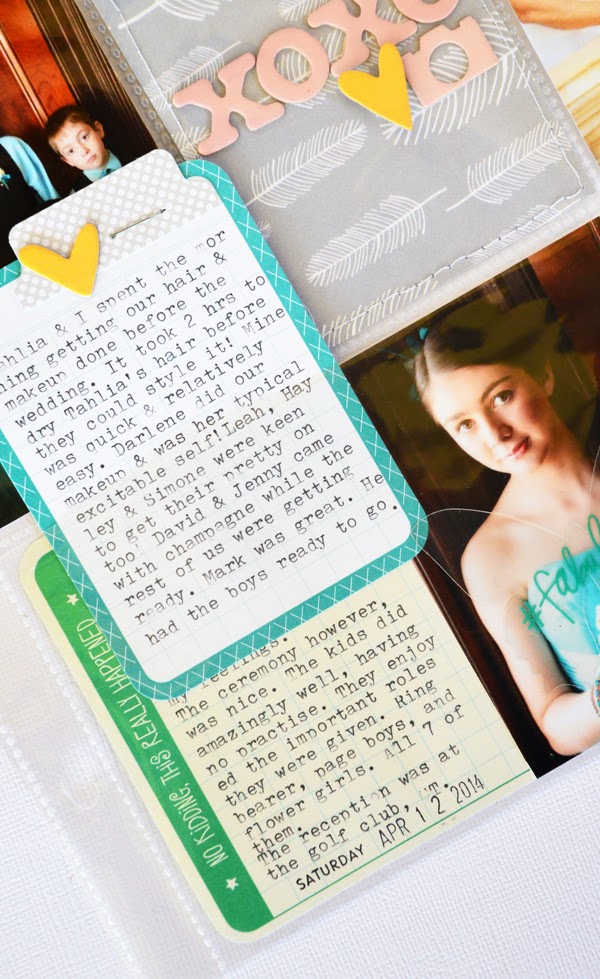 xoxo
ahlia & I spent the mor
ning getting our hair &
makeup done before the
wedding. It took 2 hrs to
dry Tahlia's hair before
they could style it! Mine
was quick & relatively
easy. Darlene did our
makeup & was her typical
excitable self!Leah, Hay
ley & Simone were keen
to get their pretty on
too. David & Jenny came
with champagne while the
rest of us were getting
ready. Mark was great. He
had the boys ready to go.
#fabul
NO KIDDING, THIS REALLY HAPPENED
my feelings.
The ceremony however,
was nice. The kids did
amazingly well, having
no practise. They enjoy
ed the important roles
they were given. Ring
bearer, page boys, and
flower girls. All 7 of
them.
The reception was at
the golf club,
SATURDAY APR 12 2014